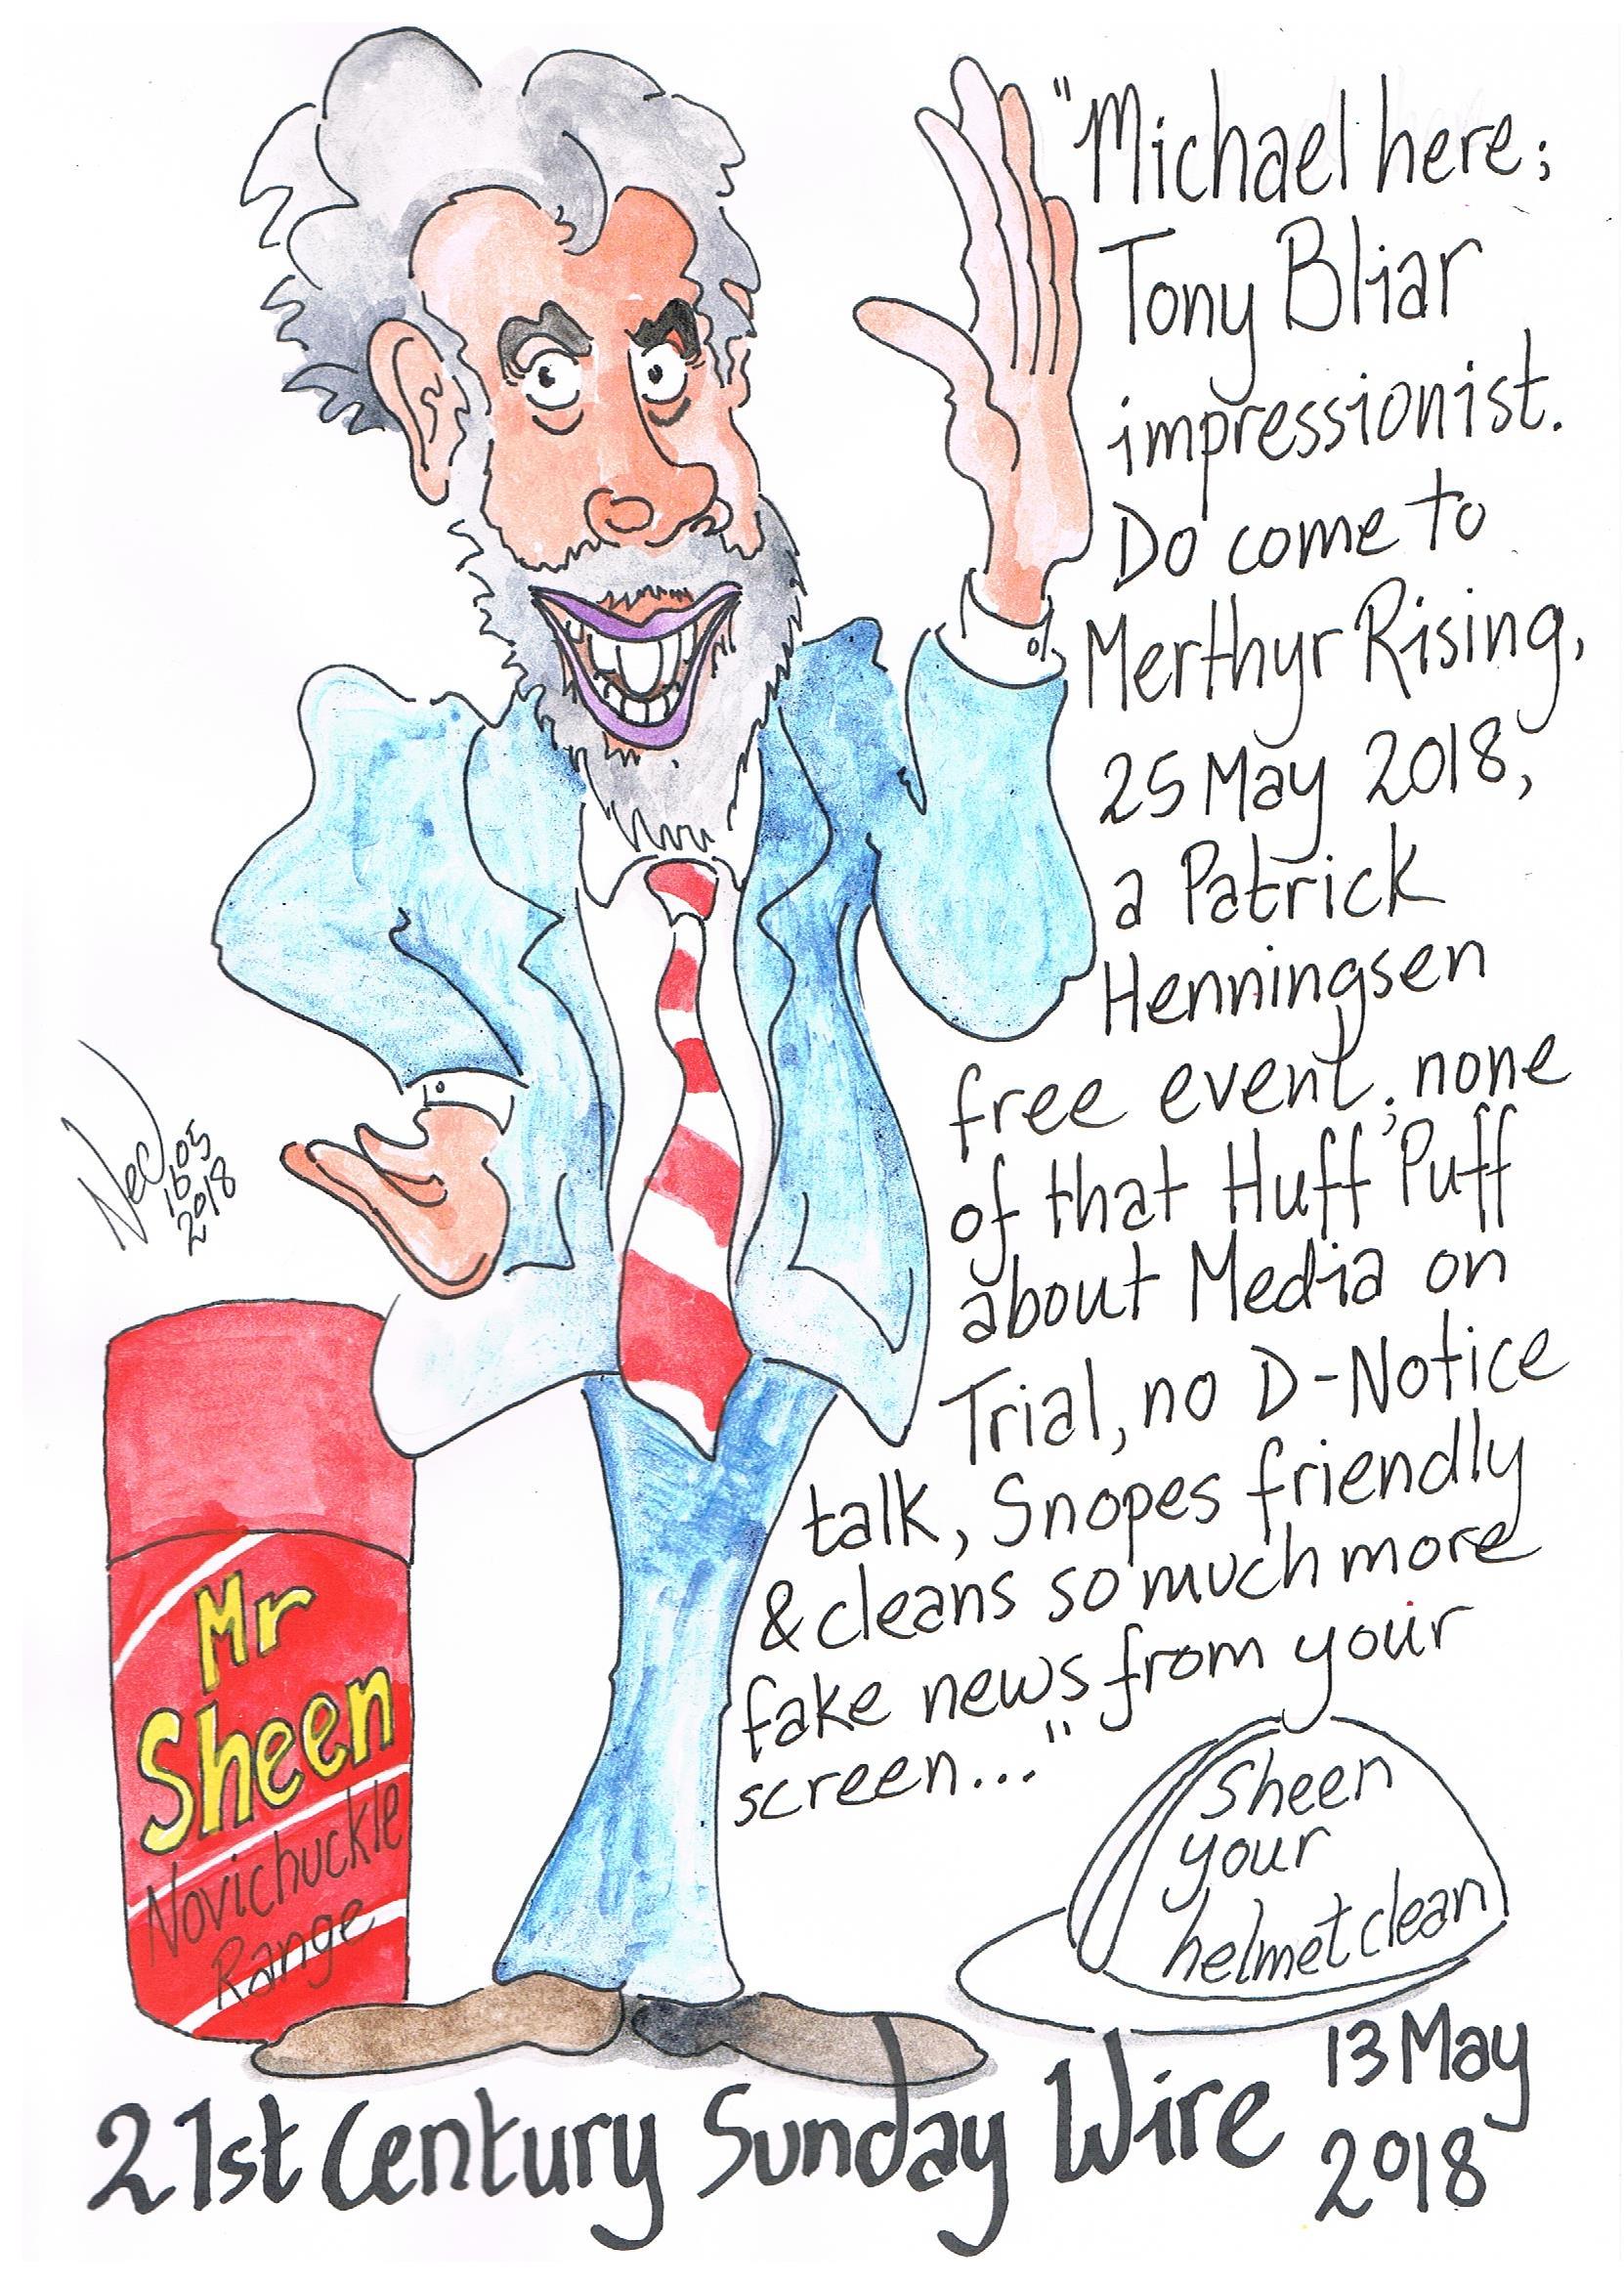 "Michael here;
Tony Bliar
impressionist.
Do come to
Merthyr Rising,
25 May 2018,
a Patrick
Henningsen
free event; none
of that Huff Puff
about Media on
Trial, no D-Notice
talk, Snopes friendly
& cleans so much more
fake news from your
screen..."
05
2018
Mr
Sheen
Novichuckle
Range
Sheen
your
helmet clean
21st Century Sunday Wire
13 May
2018